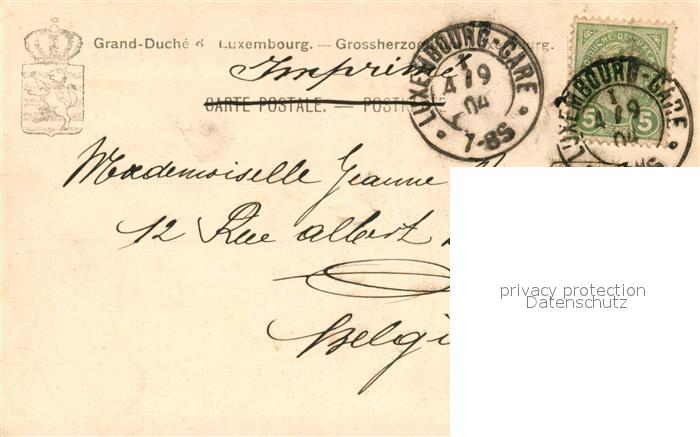 Grand-Duché d Luxembourg. — Grossherzog urg.
Imprimé
CARTE POSTALE. — POST
LUXEMBOURG-GARE
1
A 9
04
7-8S
DUCHÉ-DE-LUX
5 5
LUXEMBOURG-GARE
1
9
04
8S
Mademoiselle Jeanne
12 Rue albert
Belgi
privacy protection
Datenschutz